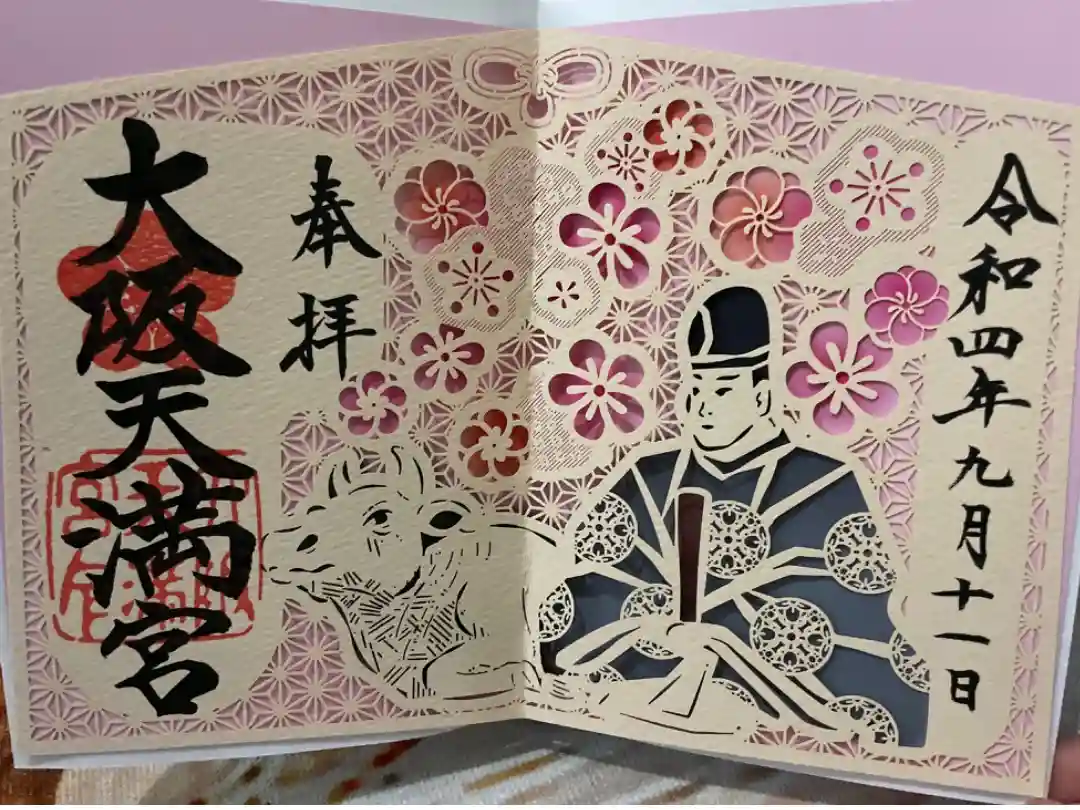 令和四年九月十一日
奉拝
大阪天満宮